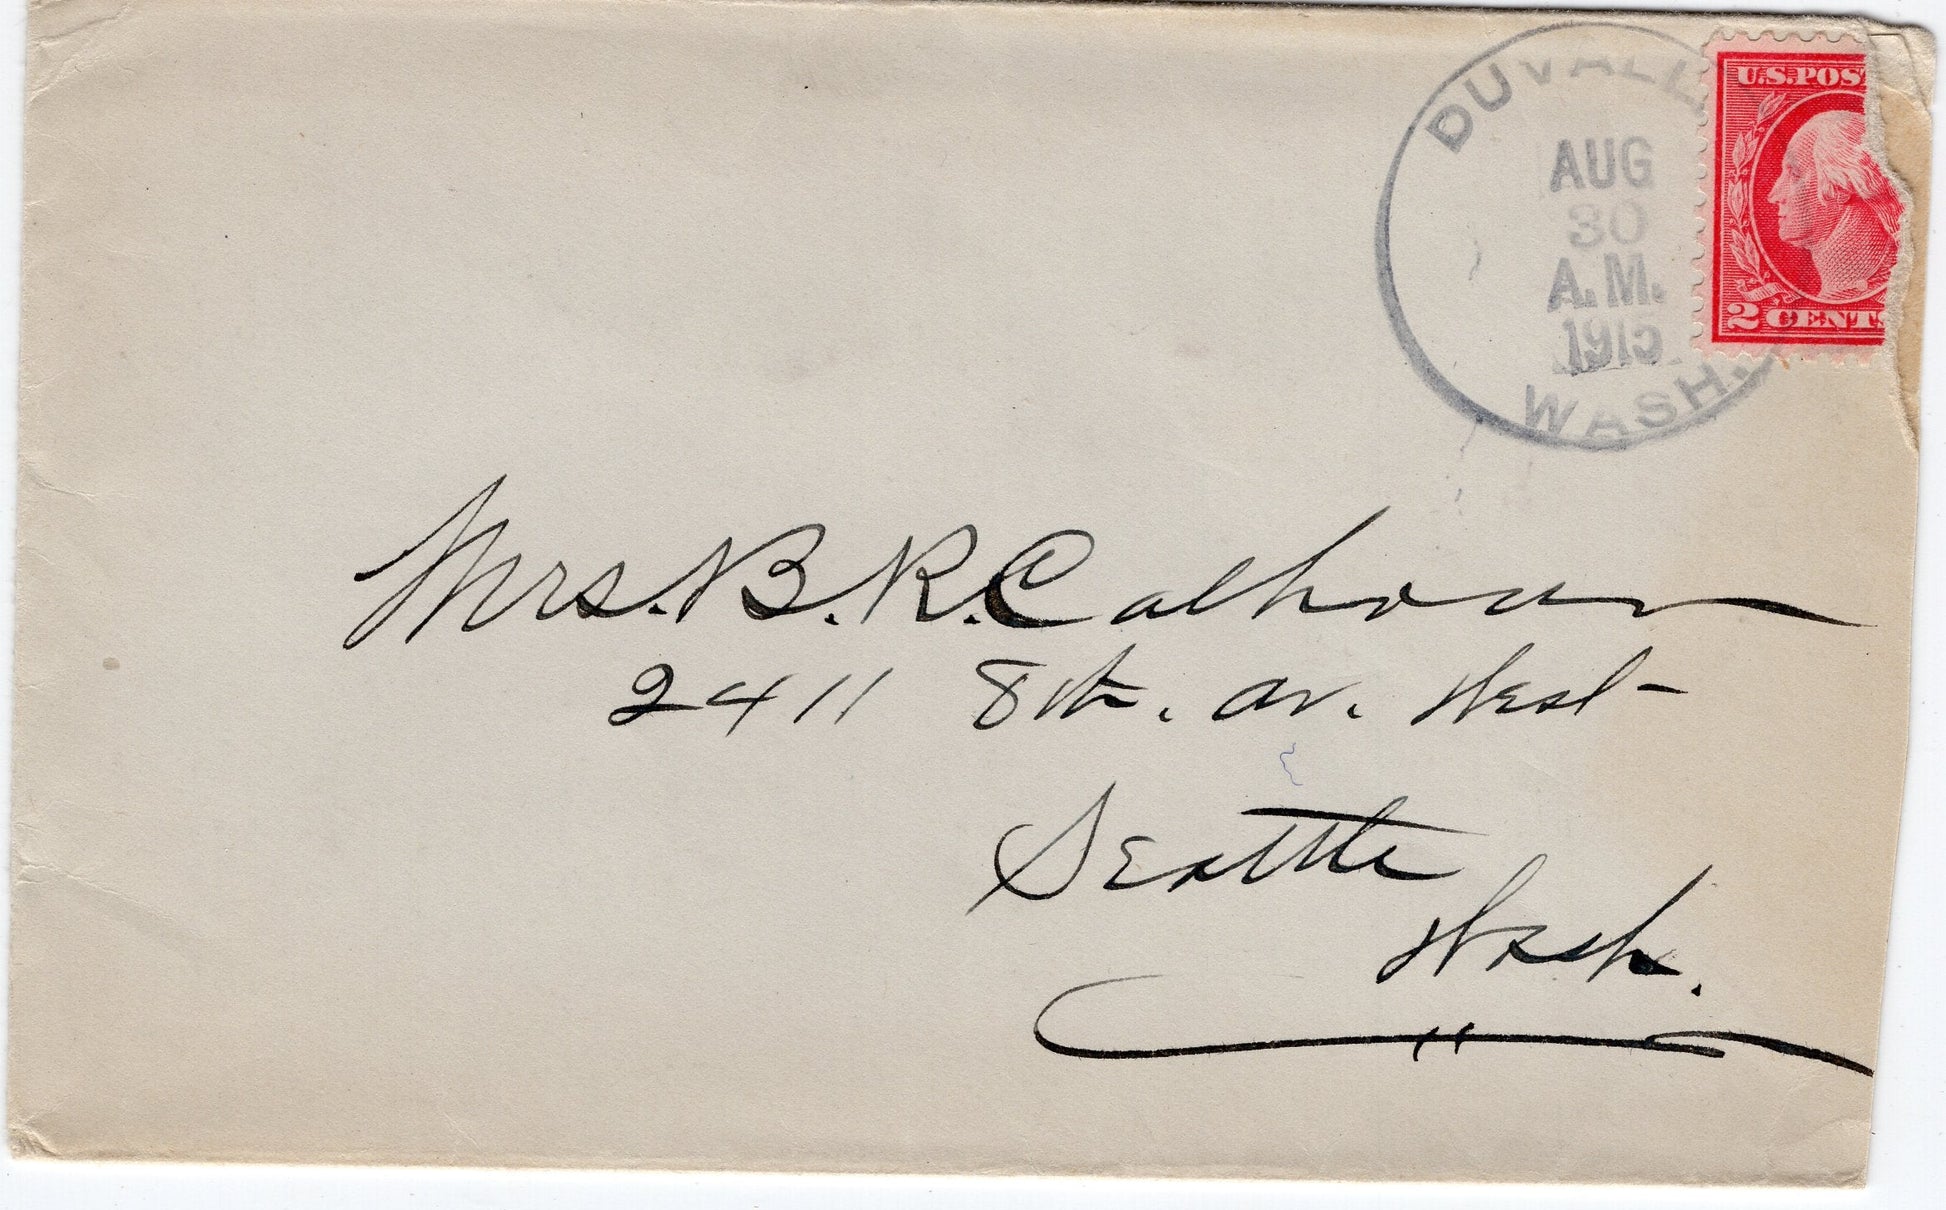 DUVALL
AUG
30
A.M.
1915
WASH.
U.S.POS
2 CENTS
Mrs. B. R. Calhoun
2411 8th. Av. West
Seattle
Wash.
"